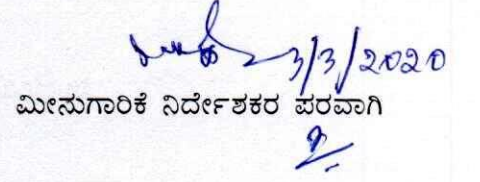 3/3/2020
ಮೀನುಗಾರಿಕೆ ನಿರ್ದೇಶಕರ ಪರವಾಗಿ